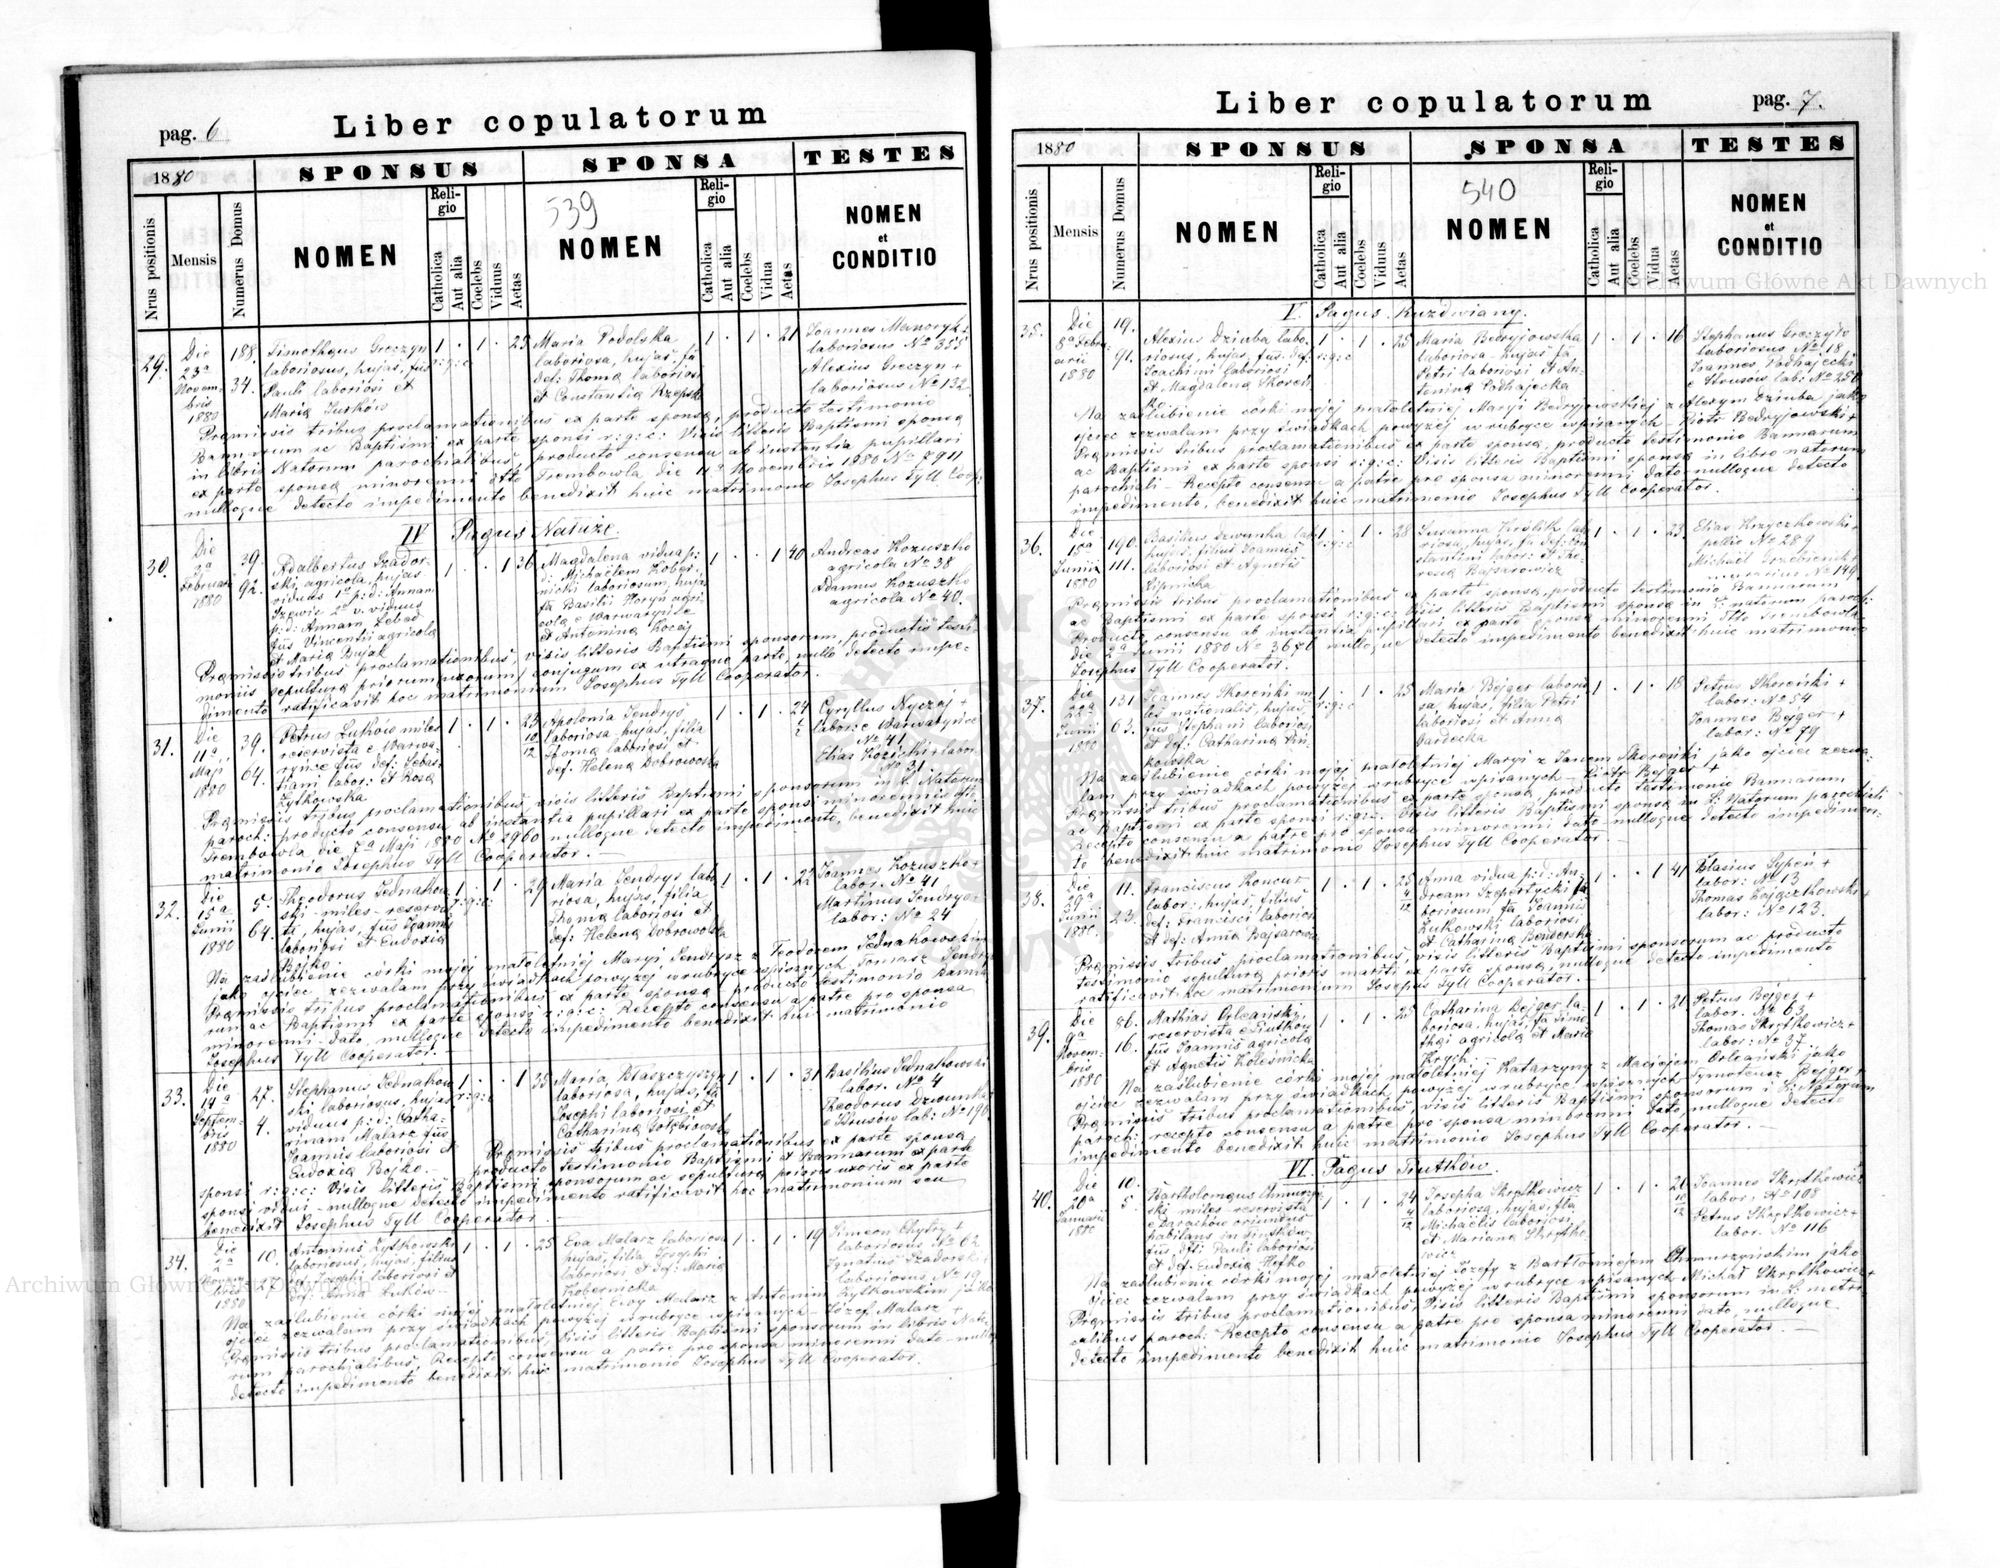 pag. 6
Liber copulatorum
1880
SPONSUS
SPONSA
TESTES
Nrus positionis
Mensis
Numerus Domus
NOMEN
Religio
Catholica
Aut alia
Coelebs
Vidus
Aetas
539
NOMEN
Religio
Catholica
Aut alia
Coelebs
Vidua
Aetas
NOMEN
et
CONDITIO
29.
Die
23a
Novem
bris
1880
188.
34.
Timotheus Greczyn
laboriosus, hujas, fus
Pauli laboriosi et
Maria Turków
1 . 1 . 25
r:g:c
Maria Podolska
laboriosa, hujas, fa
def: Thoma laboriosi
et Constantia Rzepski
1 . 1 . 21
Joannes
laboriosus No 355
Alexius Greczyn +
laboriosus No 132
Pramissis tribus proclamationibus ex parte sponsa, producto testimonio
Bannorum ac Baptismi ex parte sponsi r:g:c: Visis litteris Baptismi sponsa
in libris Natorum parochialibus, producto consensu ab instantia pupillari
ex parte sponsa minorenni dtto Trembowla die 11a Novembris 1880 No 7911
nulloque detecto impedimento benedixit huic matrimonio Josephus Tyll Coop:
IV Pagus Nałuże.
30.
Die
3a
Februarii
1880
39.
92.
Adalbertus Szador-
ski agricola, hujas
viduus 1o p:d: Annam
2o v. viduus
p:d: Annam Zebad
fus Vincentii agricola
et Maria Bujak
1 . 1 36
Magdalena vidua p:
d: Michaëlem Kober-
nicki laboriosum, hujas
fa Basilii Horyn agri-
cola e Warwaryńce
et Antonina Kocaj
1 . . 1 40
Andreas Kozuszko
agricola No 38
Adamus Kozuszko
agricola No 40.
Pramissis tribus proclamationibus, visis litteris Baptismi sponsorum, productis testi-
moniis sepultura priorum (uxorum) conjugum ex utraque parte, nullo detecto impe-
dimento ratificavit hoc matrimonium Josephus Tyll Cooperator.
31.
Die
11a
Maji
1880
39.
64.
Petrus Lutków miles
reservista e Warwa-
ryńce fus def: Sebas-
tiani labor: et Rosa
Żytkowska
1 . 1 . 23
10
12
Apolonia Jendryś
laboriosa hujas, filia
Thoma laboriosi et
def: Helena Dobrowolska
1 . 1 . 24
Cyryllus Nyczaj +
labor: e Warwaryńce
No 41
Elias Koziski + labor.
No 31
Pramissis tribus proclamationibus, visis litteris Baptismi sponsorum in L. Natorum
paroch: producto consensu ab instantia pupillari ex parte sponsi minorennis dtto
Trembowla die 7a Maji 1880 No 2960 nulloque detecto impedimento, benedixit huic
matrimonio Josephus Tyll Cooperator.
32.
Die
15a
Junii
1880
5.
64.
Theodorus Jednakow-
ski - miles - reservi-
sta, hujas, fus Joannis
laboriosi et Eudoxia
Bojko.
1 . 1 . 29
r:g:c:
Maria Jendrys labo-
riosa, hujas, filia
Thoma laboriosi et
def: Helena Dobrowolska
1 . 1 . 22
Joannes Kozuszko +
labor. No 41
Martinus Jendrys +
labor: No 24
Na zaślubienie córki mojej małoletniej Maryi Jendrysz z Teodorem Jednakowskim
jako ojciec zezwalam przy świadkach powyżej w rubryce wpisanych Tomasz Jendrys
Pramissis tribus proclamationibus ex parte sponsa producto testimonio Banno-
rum ac Baptismi ex parte sponsi r:g:c: Recepto consensu a patre pro sponsa
minorenni dato, nulloque detecto impedimento benedixit huic matrimonio
Josephus Tyll Cooperator.
33.
Die
14a
Septem-
bris
1880
27.
4.
Stephanus Jednakow-
ski, laboriosus, hujas
viduus p:d: Catha-
rinam Malarz fus
Joannis laboriosi et
Eudoxia Bojko.
1 . . 1 35
r:g:c
Maria Błaszczyszyn
laboriosa, hujas, fa
Josephi laboriosi et
Catharina Gołębiowska
1 . 1 . 31
Basilius Jednakowski
labor. No 4
Theodorus Dzwunka
e Strusów lab: No 190
Pramissis tribus proclamationibus ex parte sponsa
producto testimonio Baptismi et Bannorum ex parte
sponsi r:g:c: Visis litteris Baptismi sponsorum ac sepultura prioris uxoris ex parte
sponsi vidui - nulloque detecto impedimento ratificavit hoc matrimonium seu
benedixit Josephus Tyll Cooperator.
34.
Die
2a
Novem
bris
1880
10.
27.
Antonius Żytkowski
laboriosus, hujas, filius
Josephi laboriosi et
Anna Łuków.
1 . 1 . 25
Eva Malarz laboriosa
hujas, filia Josephi
laboriosi et def: Maria
Kobernicka
1 . 1 . 19
Simeon Chytry +
laboriosus No 62
Ignatius Szadorski +
laboriosus No 19
Na zaślubienie córki mojej małoletniej Ewy Malarz z Antonim Żytkowskim jako
ojciec zezwalam przy świadkach powyżej w rubryce wpisanych - Józef Malarz +
Pramissis tribus proclamationibus Visis litteris Baptismi sponsorum in libris Nato-
rum parochialibus, Recepto consensu a patre pro sponsa minorenni dato - nulloque
detecto impedimento benedixit huic matrimonio Josephus Tyll Cooperator.
Liber copulatorum
pag. 7.
1880
SPONSUS
SPONSA
TESTES
Nrus positionis
Mensis
Numerus Domus
NOMEN
Religio
Catholica
Aut alia
Coelebs
Vidus
Aetas
540
NOMEN
Religio
Catholica
Aut alia
Coelebs
Vidua
Aetas
NOMEN
et
CONDITIO
V. Pagus Ruzdwiany.
35.
Die
8a Febru-
arii
1880
19.
91.
Alexius Dziuba labo-
riosus, hujas, fus. def.
Joachimi laboriosi
et Magdalena Skoreń
1 . 1 . 25
r:g:c
Maria Bedryjowska
laboriosa - hujas fa
Petri laboriosi et An-
tonina Podhajecka
1 . 1 . 16
Stephanus Greczyło
laboriosus No 18
Joannes Podhajecki
e Strusów lab: No 250
Na zaślubienie córki mojej małoletniej Maryi Bedryjowskiej z Alexym Dziuba jako
ojciec zezwalam przy świadkach powyżej w rubryce wpisanych - Piotr Bedryjowski +
Pramissis tribus proclamationibus ex parte sponsa, producto testimonio Bannorum
ac Baptismi ex parte sponsi r:g:c: Visis litteris Baptismi sponsa in libro natorum
parochiali - Recepto consensu a patre pro sponsa minorenni dato nulloque detecto
impedimento, benedixit huic matrimonio Josephus Tyll Cooperator.
36.
Die
15a
Junii
1880
190.
111.
Basilius Dzwunka lab
hujas, filius Joannis
laboriosi et Agnetis
Lipnicka
1 . 1 . 28
r:g:c
Susanna Króślik labo-
riosa, hujas, fa def: Con-
stantini labor: et The-
resia Bajsarowicz
1 . 1 . 23
Elias Krzyczkowski +
pellio No 289
Michaël
No 149.
Pramissis tribus proclamationibus ex parte sponsa, producto testimonio Bannorum
ac Baptismi ex parte sponsi r:g:c: Visis litteris Baptismi sponsa in L: natorum paroch:
Producto consensu ab instantia pupillari ex parte sponsa minorenni dtto Trembowla
die 2a Junii 1880 No 3670 nulloque detecto impedimento benedixit huic matrimonio
Josephus Tyll Cooperator.
37.
Die
22a
Junii
1880
131
63.
Joannes Skoreński mi-
les nationalis, hujas
fus Stephani laboriosi
et def: Catharina
kowska
1 . 1 . 25
r:g:c
Maria Bejger laborio-
sa, hujas, filia Petri
laboriosi et Anna
Gardecka
1 . 1 . 18
Petrus Skoreński +
labor: No 54
Joannes Bejger +
labor: No 79
Na zaślubienie córki mojej małoletniej Maryi z Janem Skoreński jako ojciec zezwa-
lam przy świadkach powyżej w rubryce wpisanych - Piotr Bejger +
Pramissis tribus proclamationibus ex parte sponsa, producto testimonio Bannorum
ac Baptismi ex parte sponsi r:g:c: Visis litteris Baptismi sponsa in L: Natorum parochiali
Recepto consensu a patre pro sponsa minorenni dato - nulloque detecto impedimen-
to benedixit huic matrimonio Josephus Tyll Cooperator.
38.
Die
29a
Junii
1880.
11.
23.
Franciscus
labor: hujas, filius
def: Francisci laboriosi
et def: Anna Bajsarowicz
1 . 1 . 25
Anna vidua p:d: An-
dream Szepertycki la-
boriosum, fa Joannis
Żukowski laboriosi
et Catharina Benderska
1 . . 1 41
Blasius Sypeń +
labor: No 13
Thomas
labor: No 123.
Pramissis tribus proclamationibus, visis litteris Baptismi sponsorum ac producto
testimonio sepultura prioris mariti ex parte sponsa, nulloque detecto impedimento
ratificavit hoc matrimonium Josephus Tyll Cooperator.
39.
Die
9a
Novem-
bris
1880
86.
16.
Mathias Orleański,
reservista e Tiutkow
fus Joannis agricola
et Agnetis Koleśnicka
1 . 1 . 25
Catharina Bejger la-
boriosa, hujas, fa Timo-
thei agricola et Maria
Krych
1 . 1 . 20
Petrus Bejger +
labor. No 63
Thomas Skrętkowicz +
labor: No 37
Na zaślubienie córki mojej małoletniej Katarzyny z Maciejem Orleański jako
ojciec zezwalam przy świadkach powyżej w rubryce wpisanych - Tymoteusz Bejger +
Pramissis tribus proclamationibus, visis litteris Baptismi sponsorum in L: Natorum
paroch: recepto consensu a patre pro sponsa minorenni dato, nulloque detecto
impedimento benedixit huic matrimonio Josephus Tyll Cooperator.
VI. Pagus Tiutków.
40.
Die
20a
Januarii
1880
10.
5.
Bartholomaus Chmurzyń-
ski miles - reservista
e Darachów oriundus
habitans in Tiutków
fus, dfti Pauli laboriosi
et def: Eudoxia Hefko
1 . 1 . 24
4
12
Josepha Skrętkowicz
laboriosa, hujas, fla
Michaëlis laboriosi
et Mariana Skrętko-
wicz
1 . 1 . 20
10
12
Joannes Skrętkowicz
labor: No 108
Petrus Skrętkowicz +
labor. No 116
Na zaślubienie córki mojej małoletniej Józefy z Bartłomiejem Chmurzyńskim jako
ojciec zezwalam przy świadkach powyżej w rubryce wpisanych Michał Skrętkowicz +
Pramissis tribus proclamationibus, Visis litteris Baptismi sponsorum in L: metri-
calibus paroch: Recepto consensu a patre pro sponsa minorenni dato, nulloque
detecto impedimento benedixit huic matrimonio Josephus Tyll Cooperator.
Archiwum Główne Akt Dawnych
Archiwum Główne Akt Dawnych